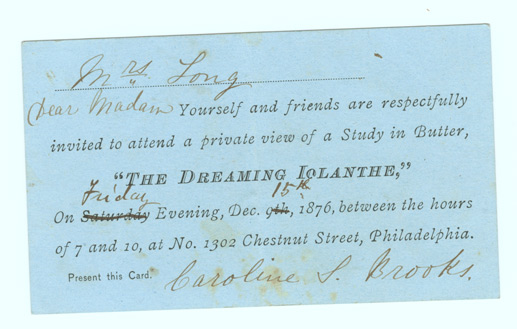 Mrs. Long
Dear Madam Yourself and friends are respectfully
invited to attend a private view of a Study in Butter,
"THE DREAMING IOLANTHE,"
Friday 15th
On Saturday Evening, Dec. 9th, 1876, between the hours
of 7 and 10, at No. 1302 Chestnut Street, Philadelphia.
Present this Card. Caroline S. Brooks.